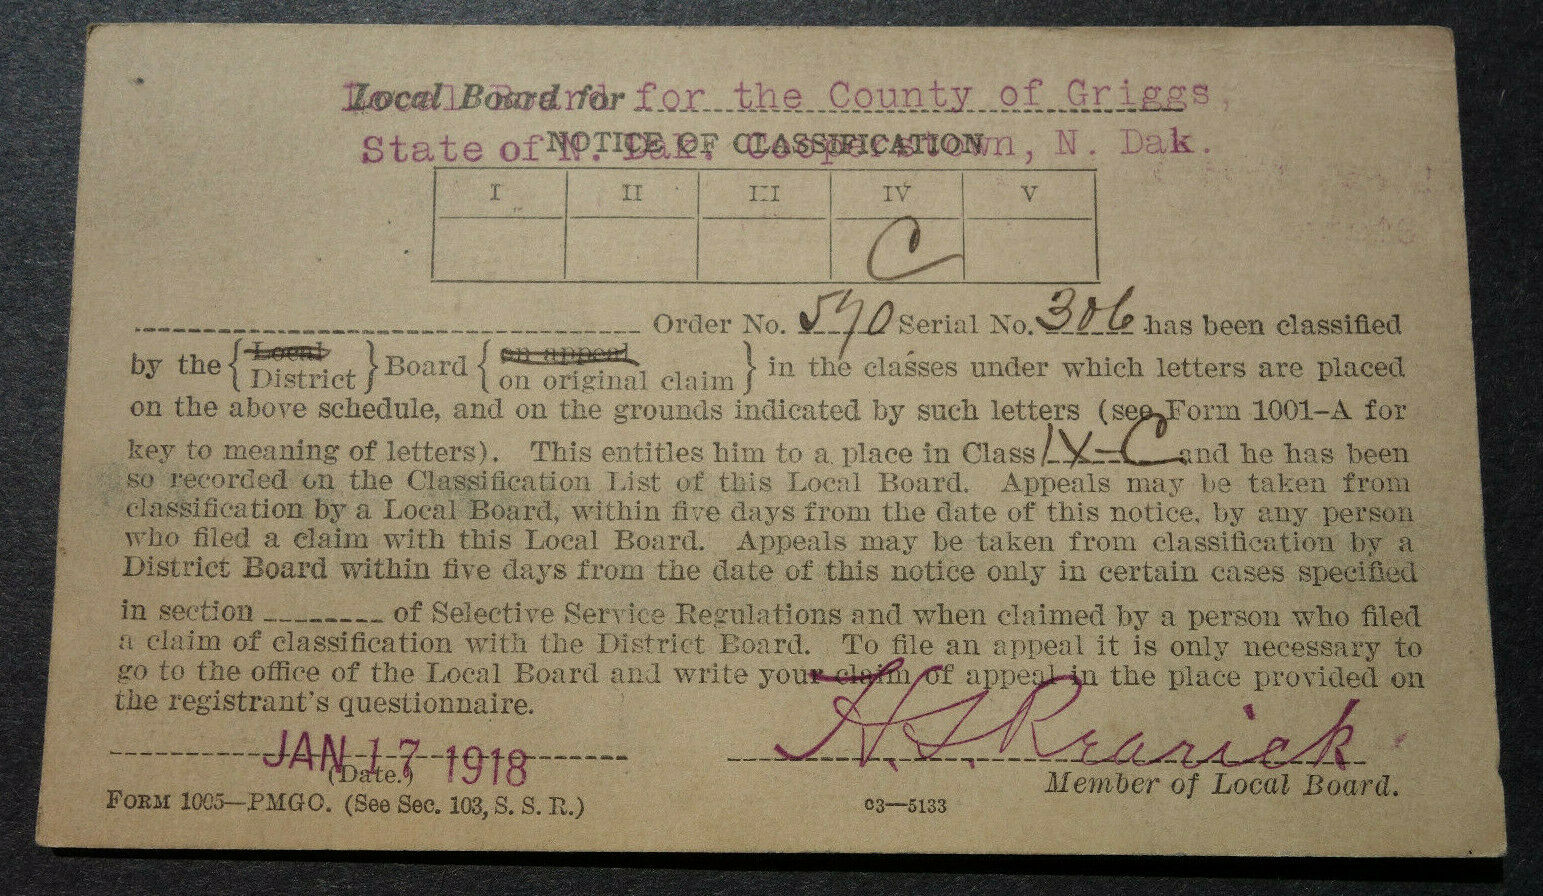 Local Board for
Local Board for the County of Griggs,
NOTICE OF CLASSIFICATION
State of N. Dak. Cooperstown, N. Dak.
I II III IV V
C
Order No. 590 Serial No. 306 has been classified
by the { Local District } Board { an appeal on original claim } in the classes under which letters are placed
on the above schedule, and on the grounds indicated by such letters (see Form 1001–A for
key to meaning of letters). This entitles him to a place in Class IX–C and he has been
so recorded on the Classification List of this Local Board. Appeals may be taken from
classification by a Local Board, within five days from the date of this notice, by any person
who filed a claim with this Local Board. Appeals may be taken from classification by a
District Board within five days from the date of this notice only in certain cases specified
in section of Selective Service Regulations and when claimed by a person who filed
a claim of classification with the District Board. To file an appeal it is only necessary to
go to the office of the Local Board and write your claim of appeal in the place provided on
the registrant's questionnaire.
JAN 17 1918
H. S. Rearick
(Date.)
Member of Local Board.
FORM 1005—PMGO. (See Sec. 103, S. S. R.)
03—5133